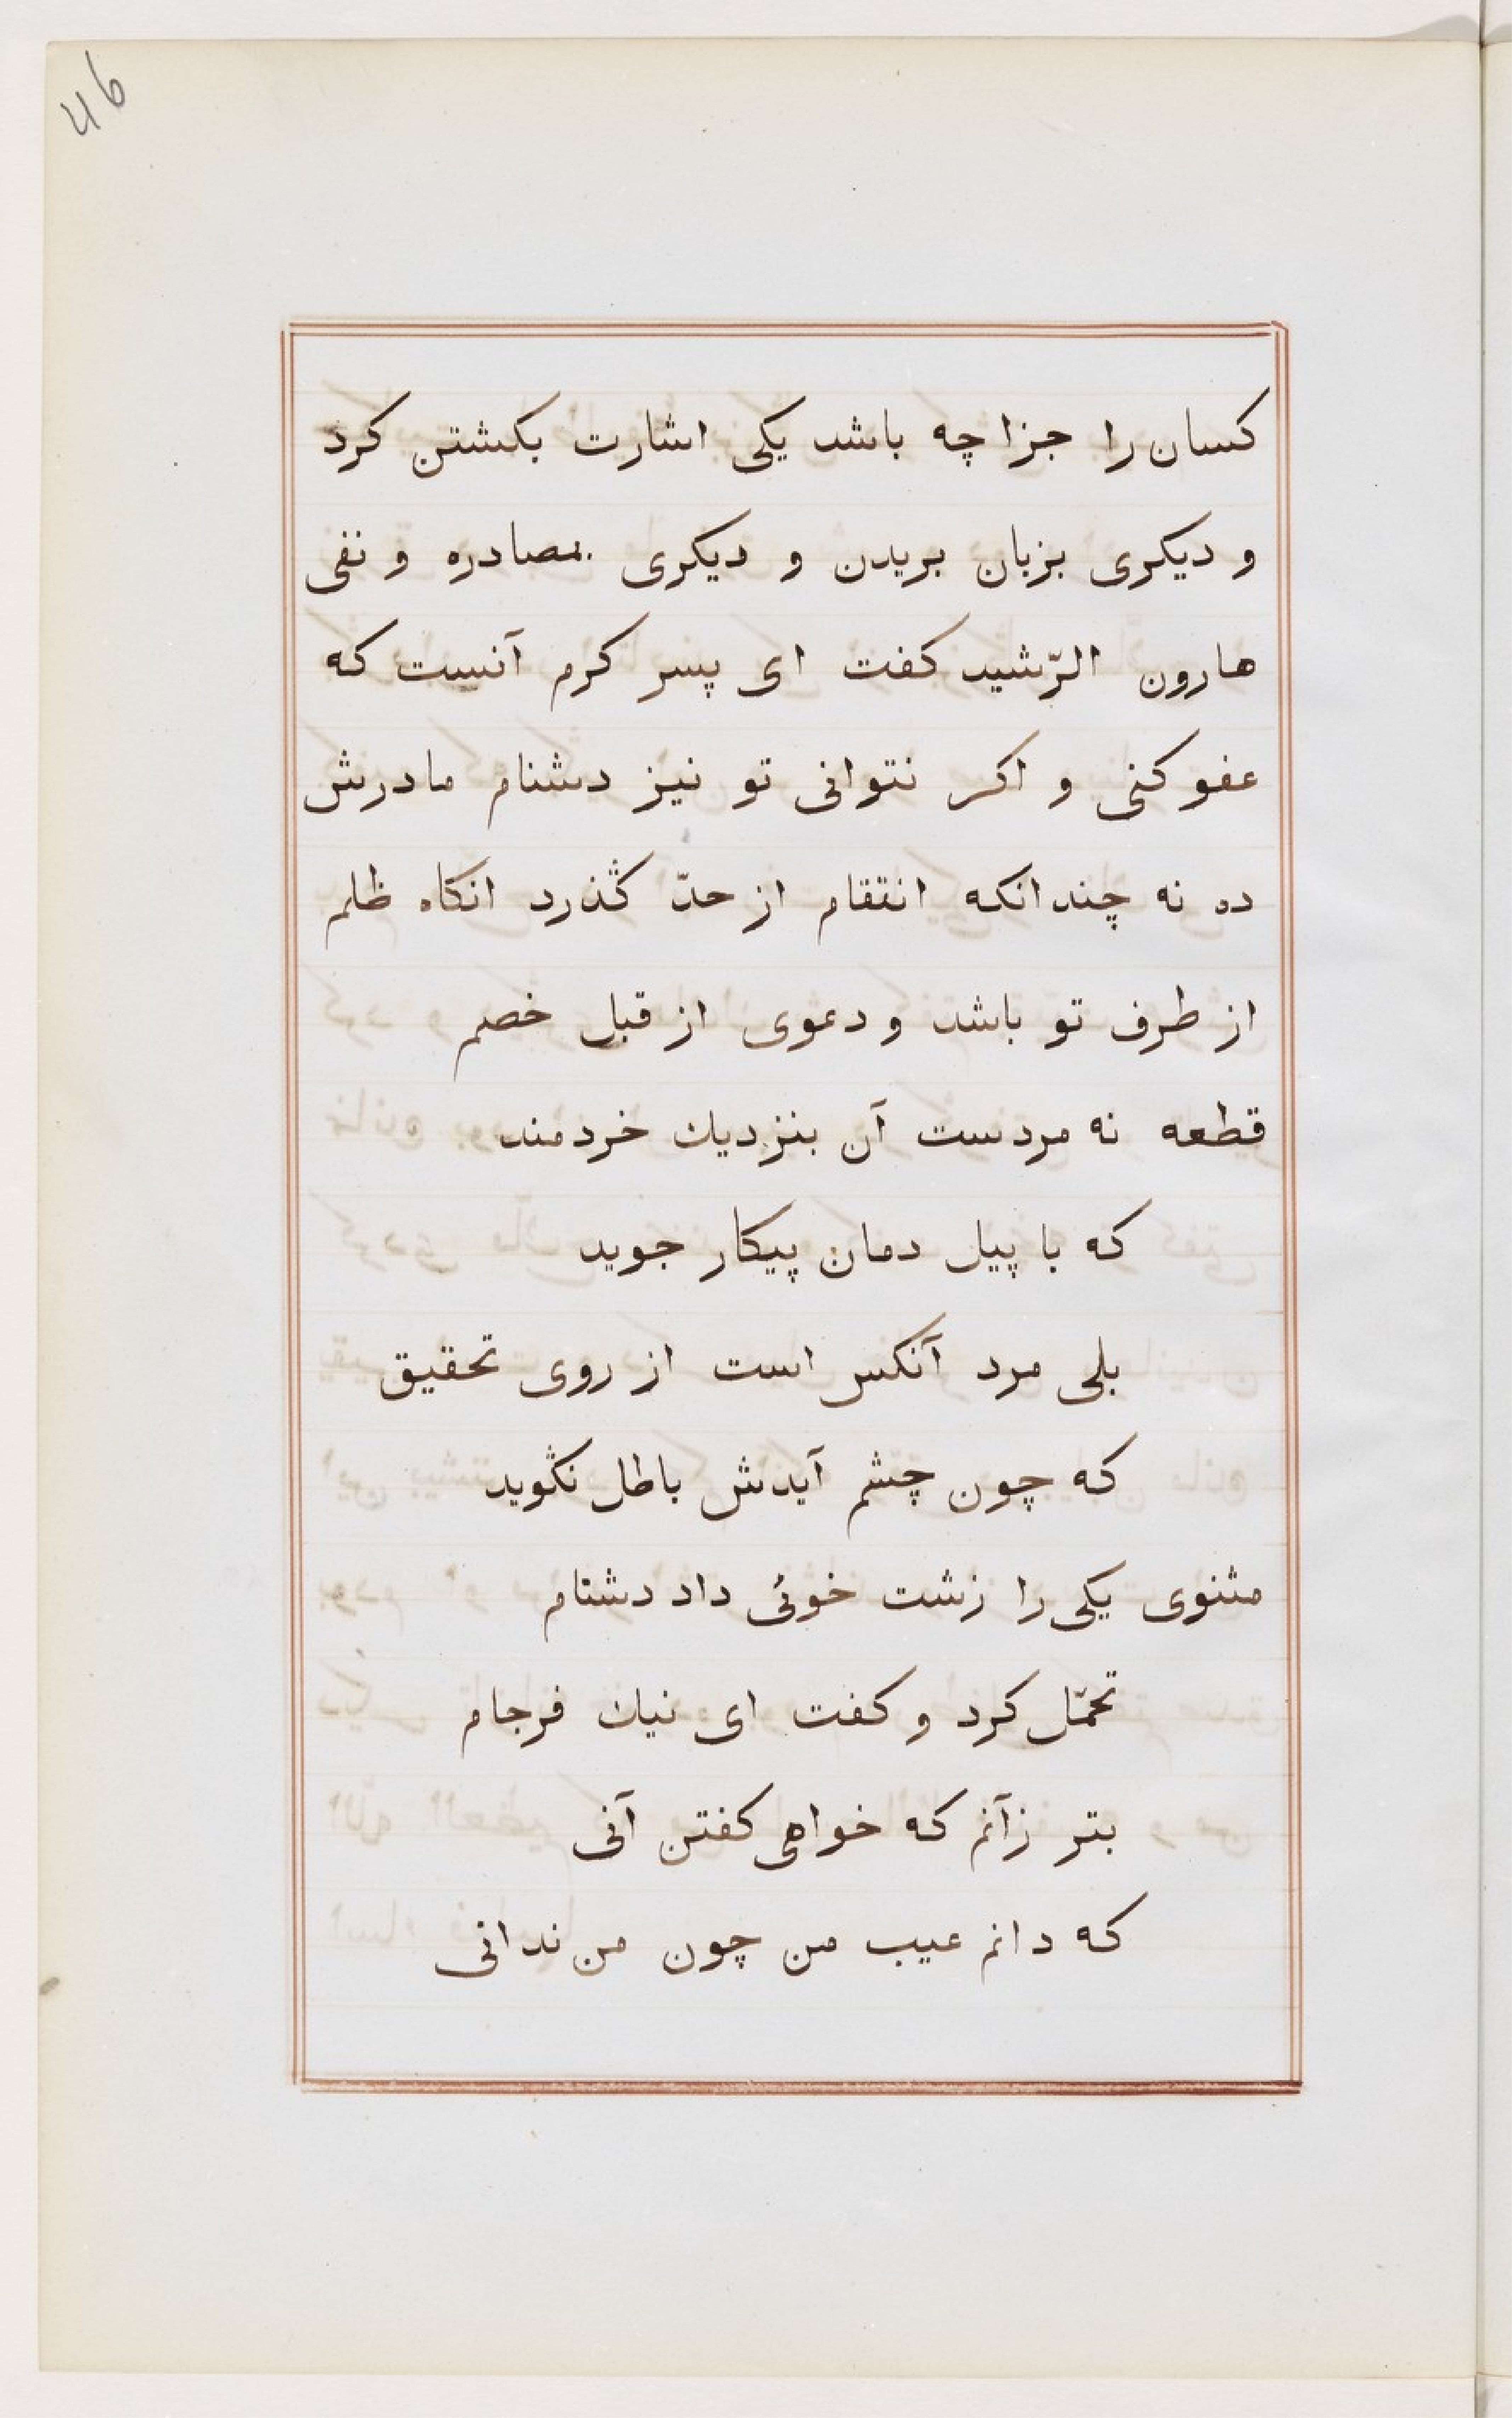 46
کسان را جزا چه باشد یکی اشارت بکشتن کرد
و دیکری بزبان بریدن و دیکری بمصادره و نفی
هارون الرّشید کفت ای پسر کرم آنست که
عفو کنی و اکر نتوانی تو نیز دشنام مادرش
ده نه چندانکه انتقام از حدّ گذرد انکاه ظلم
از طرف تو باشد و دعوی از قبل خصم
قطعه نه مردست آن بنزدیك خردمند
که با پیل دمان پیکار جوید
بلی مرد آنکس است از روی تحقیق
که چون چشم آیدش باطل نگوید
مثنوی یکی را زشت خوئی داد دشنام
تحمّل کرد و کفت ای نیك فرجام
بتر زآنم که خواهی کفتن آنی
که دانم عیب من چون من ندانی